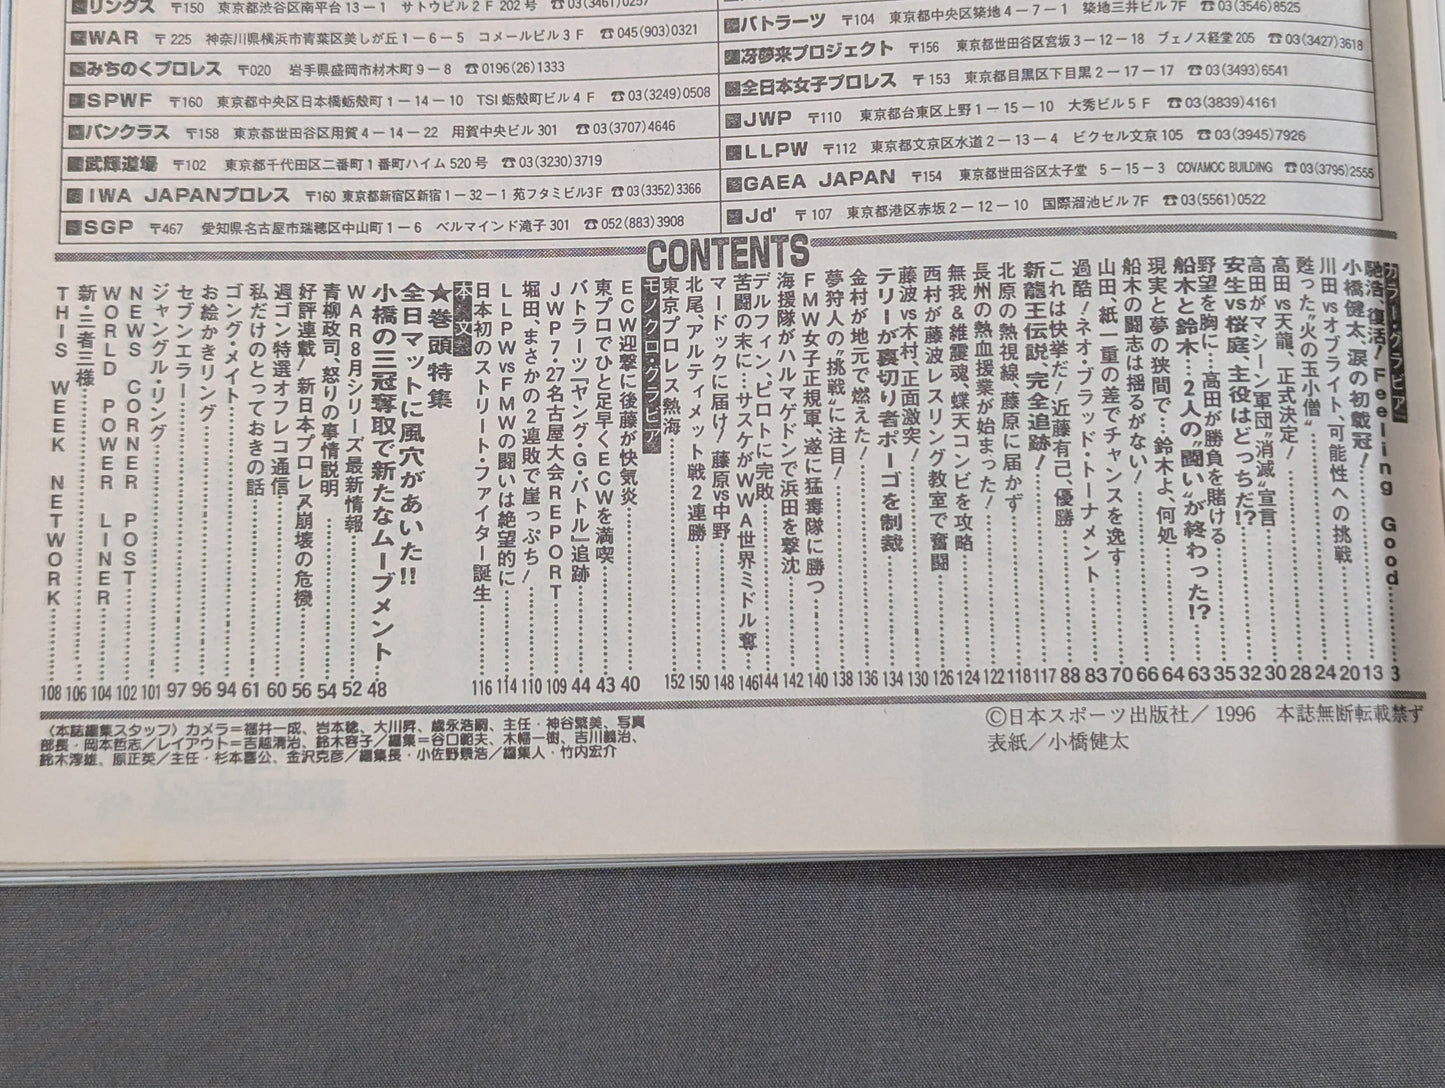 リングス 〒150 東京都渋谷区南平台13-1 サトウビル2F 202号 ☎03(3461)0257
WAR 〒225 神奈川県横浜市青葉区美しが丘1-6-5 コメールビル3F ☎045(903)0321
みちのくプロレス 〒020 岩手県盛岡市材木町9-8 ☎0196(26)1333
SPWF 〒160 東京都中央区日本橋蛎殻町1-14-10 TSI蛎殻町ビル4F ☎03(3249)0508
パンクラス 〒158 東京都世田谷区用賀4-14-22 用賀中央ビル301 ☎03(3707)4646
武輝道場 〒102 東京都千代田区二番町1番町ハイム520号 ☎03(3230)3719
IWA JAPANプロレス 〒160 東京都新宿区新宿1-32-1 苑フタミビル3F ☎03(3352)3366
SGP 〒467 愛知県名古屋市瑞穂区中山町1-6 ベルマインド滝子301 ☎052(883)3908
バトラーツ 〒104 東京都中央区築地4-7-1 築地三井ビル7F ☎03(3546)8525
冴夢来プロジェクト 〒156 東京都世田谷区宮坂3-12-18 ブェノス経堂205 ☎03(3427)3618
全日本女子プロレス 〒153 東京都目黒区下目黒2-17-17 ☎03(3493)6541
JWP 〒110 東京都台東区上野1-15-10 大秀ビル5F ☎03(3839)4161
LLPW 〒112 東京都文京区水道2-13-4 ビクセル文京105 ☎03(3945)7926
GAEA JAPAN 〒154 東京都世田谷区太子堂 5-15-3 COVAMOC BUILDING ☎03(3795)2555
Jd' 〒107 東京都港区赤坂2-12-10 国際溜池ビル7F ☎03(5561)0522
CONTENTS
カラー・グラビア
馳浩、復活！Feeling Good 3
小橋健太、涙の初戴冠！ 13
川田vsオブライト、可能性への挑戦 20
甦った“火の玉小僧” 24
高田vs天龍、正式決定！ 28
高田がマシーン軍団“消滅”宣言 30
安生vs桜庭、主役はどっちだ!? 32
野望を胸に…高田が勝負を賭ける 35
船木と鈴木…2人の“闘い”が終わった!? 63
現実と夢の狭間で…鈴木よ、何処 64
船木の闘志は揺るがない！ 66
山田、紙一重の差でチャンスを逸す 70
過酷！ネオ・ブラッド・トーナメント 83
これは快挙だ！近藤有己、優勝 88
新龍王伝説“完全追跡！ 117
北原の熱視線、藤原に届かず 118
長州の熱血援業が始まった！ 122
無我&維震魂、蝶天コンビを攻略 124
西村が藤波レスリング教室で奮闘 126
藤波vs木村、正面激突！ 130
テリーが裏切り者ポーゴを制裁 134
金村が地元で燃えた！ 136
夢狩人の“挑戦”に注目！ 138
FMW女子正規軍、遂に猛毒隊に勝つ 140
海援隊がハルマゲドンで浜田を撃沈 142
デルフィン、ピロトに完敗 144
苦闘の末に…サスケがWWA世界ミドル奪 146
マードックに届け！藤原vs中野 148
北尾、アルティメット戦2連勝 150
東京プロレス熱海 152
モノクロ・グラビア
ECW迎撃に後藤が快気炎 40
東プロでひと足早くECWを満喫 43
バトラーツ「ヤングG・バトル」追跡 44
JWP7・27名古屋大会REPORT 109
堀田、まさかの2連敗で崖っぷち！ 110
LLPWvsFMWの闘いは絶望的に 114
日本初のストリート・ファイター誕生 116
本文
★巻頭特集
全日マットに風穴があいた!!
小橋の三冠奪取で新たなムーブメント 48
WAR8月シリーズ最新情報 52
青柳政司、怒りの事情説明 54
好評連載！新日本プロレス崩壊の危機 56
週ゴン特選オフレコ通信 60
私だけのとっておきの話 61
ゴング・メイト 94
お絵かきリング 96
セブンエラー 97
ジャングル・リング 101
NEWS CORNER POST 102
WORLD POWER LINER 104
新・三者三様 106
THIS WEEK NETWORK 108
〈本誌編集スタッフ〉カメラ＝福井一成、岩本稔、大川昇、歳永浩嗣、主任・神谷繁美、写真
部長・岡本哲志／レイアウト＝吉越清治、鈴木容子／編集＝谷口範夫、木幡一樹、吉川義治、
鈴木淳雄、原正英／主任・杉本喜公、金沢克彦／編集長・小佐野景浩／編集人・竹内宏介
©日本スポーツ出版社／1996 本誌無断転載禁ず
表紙／小橋健太